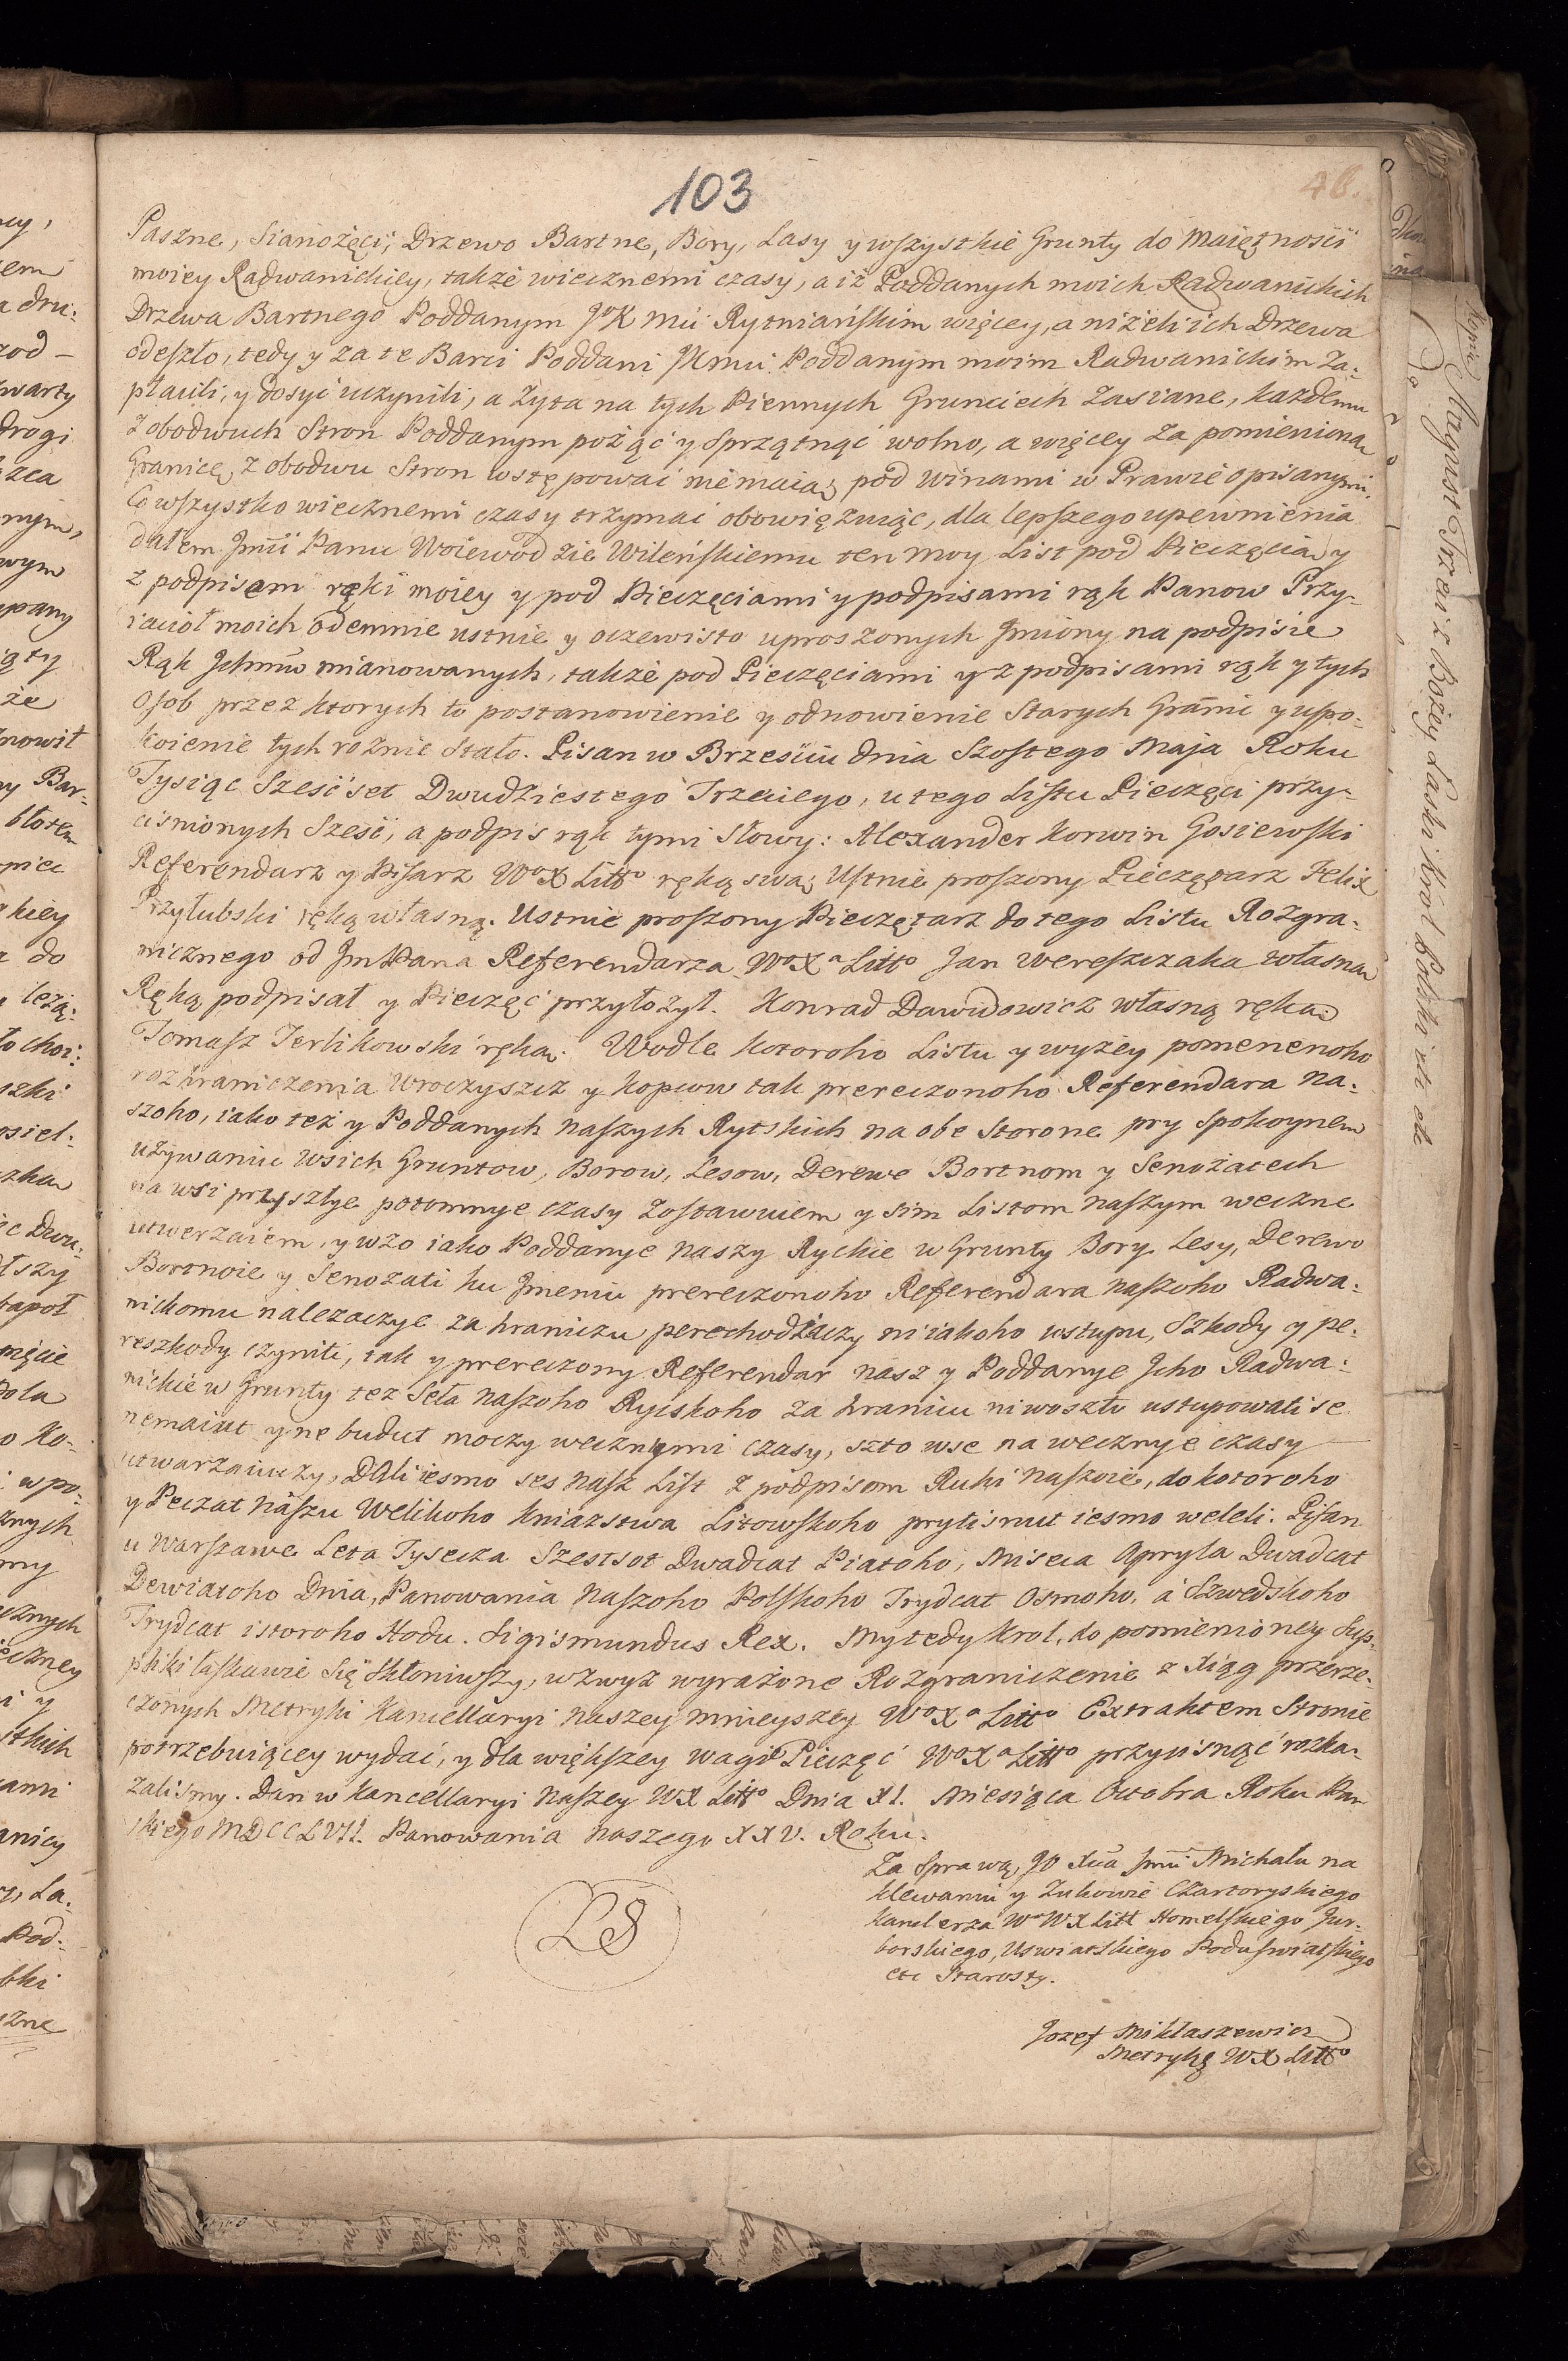 103
48.
Paszne, Sianożęci, Drzewo Bartne, Bory, Lasy y wszystkie Grunty do Maiętnosci
moiey Radwanickiey, także wiecznemi czasy, a iż Poddanych moich Radwanickich
Drzewa Bartnego Poddanym JoK Mći Rytniańskim więcey, a niżeli ich Drzewa
odeszło, tedy y za te Barci Poddani JKmći Poddanym moim Radwanickim za-
płacili, y dosyć uczynili, a Żyta na tych Piennych Grunciech Zasiane, każdemu
z obodwuch Stron Poddanym pożąć y sprzątnąć wolno, a więcey za pomienioną
Granicę, z obodwu Stron wstępować niemaią, pod winami w Prawie opisanymi.
Co wszystko wiecznemi czasy trzymać obowięzuiąc, dla lepszego upewnienia
dałem Jmći Panu Woiewodzie Wileńskiemu ten moy List pod Pieczęcią y
z podpisem ręki moiey y pod Pieczęciami y podpisami rąk Panow Przy-
iacioł moich odemnie ustnie y oczewisto uproszonych Jmiony na podpisie
Rąk Ichmćw mianowanych, także pod Pieczęciami y z podpisami rąk y tych
Osob przez ktorych to postanowienie y odnowienie Starych Granic y uspo-
koienie tych roznic stało. Pisan w Brzesciu dnia Szostego Maja Roku
Tysiąc Sześćset Dwudziestego Trzeciego, u tego Listu Pieczęci przy-
ciśnionych Sześć, a podpis rąk tymi Słowy: Alexander Korwin Gosiewski
Referendarz y Pisarz WoX Litto ręką swą, Ustnie proszony Pieczętarz Felix
Przyłubski ręką własną. Ustnie proszony Pieczętarz do tego Listu Rozgra-
nicznego od Jm Pana Referendarza WoXa Litto Jan Wereszczaka własną
Ręką podpisał y Pieczęć przyłożył. Konrad Dawidowicz własną ręką
Tomasz Terlikowski ręką. Wodle kotoroho Listu y wyżey pomenenoho
rozhraniczenia Uroczyszcz y kopcow tak prereczonoho Referendara Na-
szoho, iako też y Poddanych naszych Rytskich na obe storone pry spokoynem
używaniu wsich Gruntow, Borow, Lesow, Derewe Bortnom y Senożatech
na wsi przyszłye potomnye czasy zostawuiem y sim Listom naszym weczne
utwerzaiem, y wżo iako Poddanye naszy Ryckie w Grunty Bory Lesy, Derewo
Bortnoie y Senożati ku Jmeniu prereczonoho Referendara naszoho Radwa-
nickomu nalezaczye za hranicu perechodiaczy niiakoho wstupu, Szkody y pe-
reszkody czyniti, tak y prereczony Referendar nasz y Poddanye Jeho Radwa-
nickie w Grunty tez Seła naszoho Ryckoho za hranicu niwoszto ustupowati se
nemaiut y ne budut moczy wecznymi czasy, szto wse na wecznye czasy
utwarzaiuczy, Dali iesmo ses nasz List z podpisom Ruki naszoie, do kotoroho
y Peczat naszu Welikoho Kniazstwa Litowskoho prytisnut iesmo weleli. Pisan
u Warszawe Leta Tysecza Szestsot Dwadcat Piatoho, Miseca Apryla Dwadcat
Dewiatoho Dnia, Panowania naszoho Polskoho Trydcat Osmoho, a Szwedskoho
Trydcat wtoroho Hodu. Sigismundus Rex. My tedy Krol, do pomienioney Sup-
pliki łaskawie się skłoniwszy, wzwyz wyrażone Rozgraniczenie z Xiąg przerze-
czonych Metryki Kancellaryi naszey mnieyszey WoXa Litto Extraktem Stronie
potrzebuiącey wydać, y dla większey wagi Pieczęć WoXa Litto przycisnąć rozka-
zalismy. Dan w Kancellaryi Naszey WX Litto Dnia XI. Miesiąca Octobra Roku Pań
skiego MDCCLVII. Panowania naszego XXV. Roku.
Za sprawą JO Xcia Jmći Michała na
Klewaniu y Zukowie Czartoryskiego
Kanclerza WoWX Litt Homelskiego Jur-
borskiego, Uswiatskiego Poduswiatskiego
etc Starosty.
LS
Jozef Mikłaszewicz
Metrykę WX Litto
Kopia
August Trzeci z Bożey Łaski Krol Polski etc etc